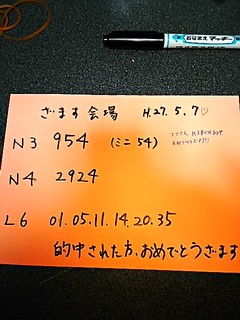 おなまえマッキー
ざます会場 H.27.5.7♡
N3 954 (ミニ54)
N4 2924
L6 01.05.11.14.20.35
的中された方、おめでとうざます